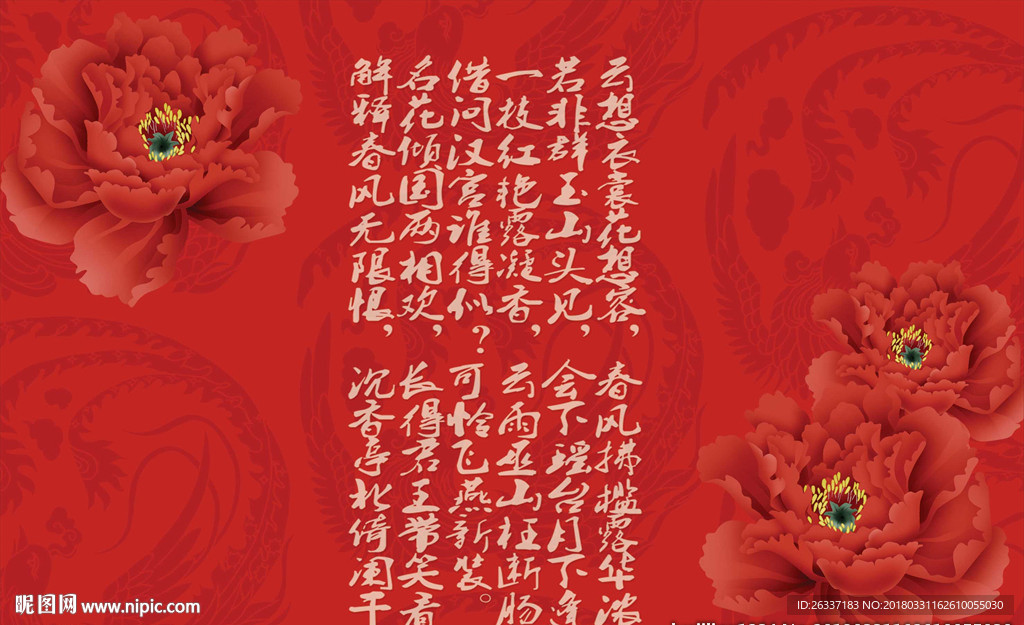 云想衣裳花想容，春风拂槛露华浓
若非群玉山头见，会下瑶台月下逢
一枝红艳露凝香，云雨巫山枉断肠
借问汉宫谁得似？可怜飞燕新装。
名花倾国两相欢，长得君王带笑看
解释春风无限恨，沉香亭北倚阑干
昵图网 www.nipic.com
ID:26337183 NO:20180331162610055030